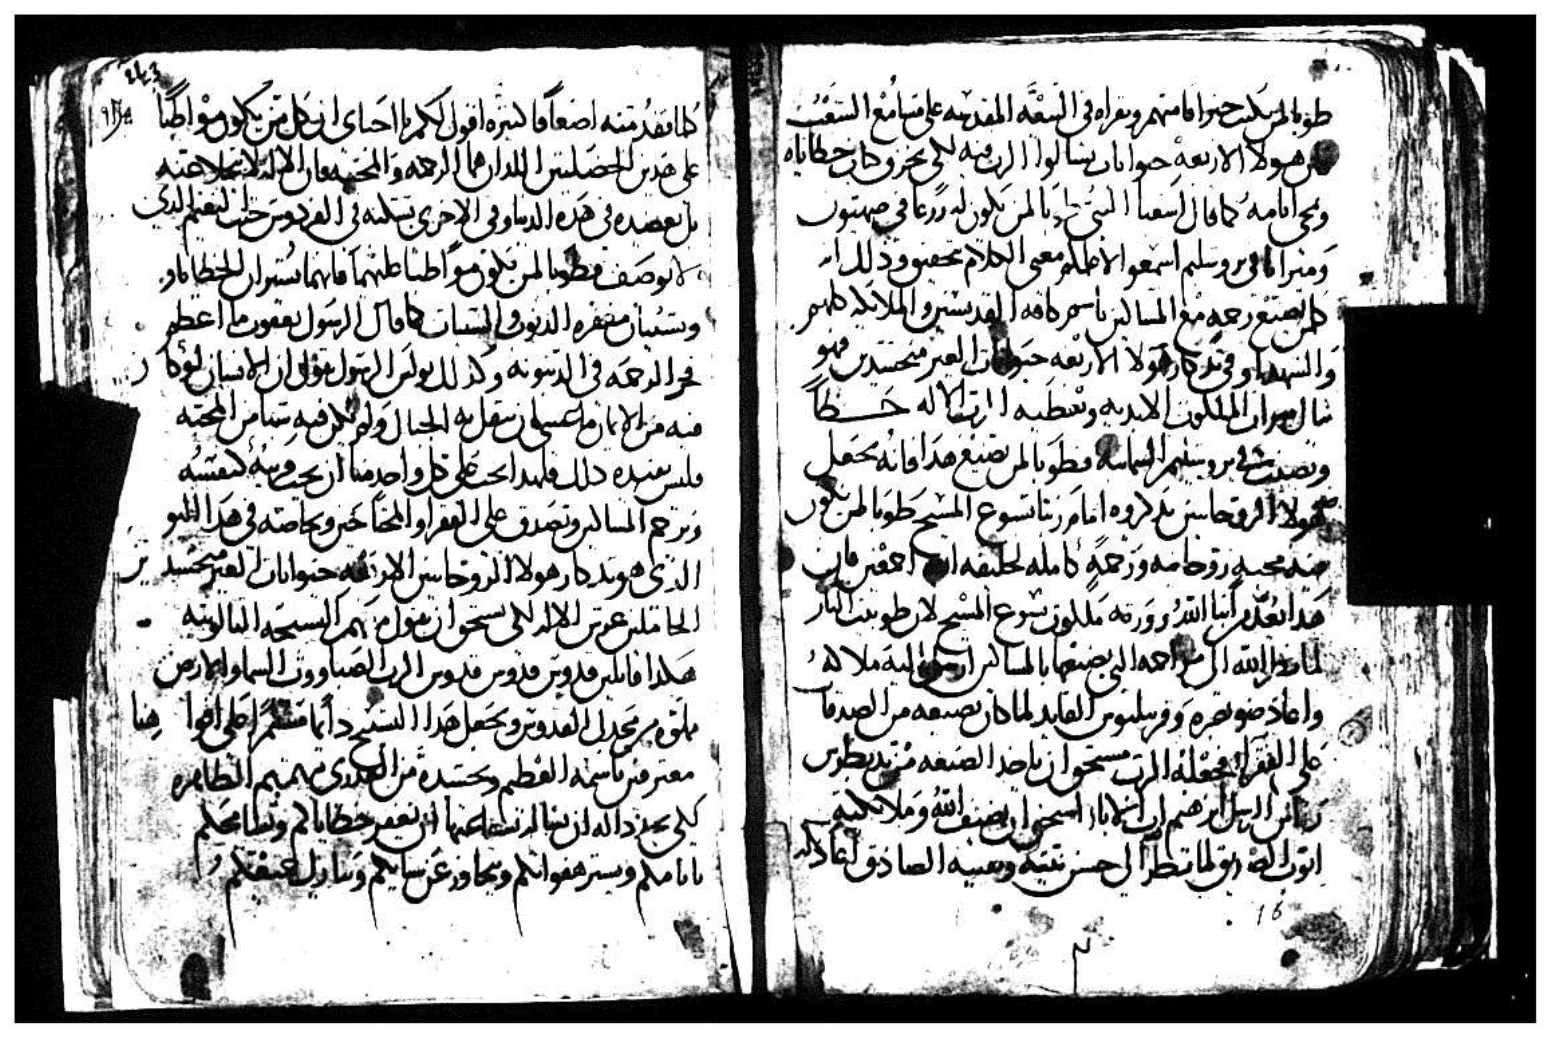 طوبا لمن يكتب حيوانا متهم ويقراه في البيعه المقدسه على مسامع الشعب
من هولا الاربعه حيوانات يسالوا الرب فيه لكي يحزق كل خطاياه
ومحى اثامه كما قال اسعيا النبي طوبا لمن يكون له زرعا في صهيون
ومنزلا في يروسليم اسمعوا الان معنى الكلام بحقيق وذلك ان
كلمن يصنع رحمه مع المساكين باسم كافه القديسين والملايكه كلهم
والشهدا وفي تدكار هولا الاربعه حيوانات الغير متجسدين فهو
ينال ميرات الملكوت الابديه ويعطيه الرب الاله حظاً
ونصيب في يروسليم السماييه فطوبا لمن يصنع هدا فانه يجعل
هولا الروحانيين يدكروه امام ربنا يسوع المسيح طوبا لمن يكون
فيه محبه روحانيه ورحمه كامله لخليقه الله اجمعين فان
هدا يعد من ابنا الله وورثه ملكوت يسوع المسيح لان طوبيت البار
لما نظر الله الى مراحمه التي يصنعها بالمساكين ارسل اليه ملاكه
واعاد ضو بصره وقرنيليوس القايد لما كان يصنعه من الصدقات
على الفقرا جعله الرب مستحق ان ياخد الصبغه من يد بطرس
راس الرسل ابرهيم اب الاباء استحق ان يضيف الله وملايكته
ايوب الصديق لما نظر الى حسن نيته وبغيه الصادق اعاد له
16
243
كلما فقد منه اضعافا كثيره اقول لكم يا احباي ان كل من يكون مواظباً
على هدين الخصلتين اللدان هما الرحمه والمحبه فان الاله لا يتخلا عنه
بل يعضده في هده الدنيا وفي الاخرى يسكنه في الفردوس حيث النعيم الدي
لا يوصف فطوبا لمن يكون مواظبا عليهما فانهما يستران الخطايا و
ويسببان مغفره الدنوب والسيات كما قال الرسول يعقوب ما اعظم
فخر الرحمه في الدينونه وكذلك بولس الرسول يقول ان الانسان لو كان
فيه من الايمان ما عسى ان ينقل به الجبال ولم يكن فيه شيا من المحبه
فليس يفيده دلك فلهدا يجب على كل واحد منا ان يحب قريبه كنفسه
ويرحم المساكين ويتصدق على الفقرا والمحتاجين وبخاصه في هدا اليوم
الذي هو تدكار هولا الروحانيين الاربعه حيوانات الغير متجسدين
الحاملين عرش الاله لكي نستحق ان نقول معهم السبحه التالوتيه
هكدا قايلين قدوس قدوس قدوس الرب الصباووت السما والارض
مملوه من مجدك القدوس ويجعل هدا التسبيح دايما مستقرا على افواهنا
معترفين باسمه العظيم وبجسده ودمه الطاهره
كلي مجد دالله ان يغفر خطاياكم ويسامحكم
باتامكم ويستر هفواتكم ويجاوز عن سياتكم ويبارك عليكم